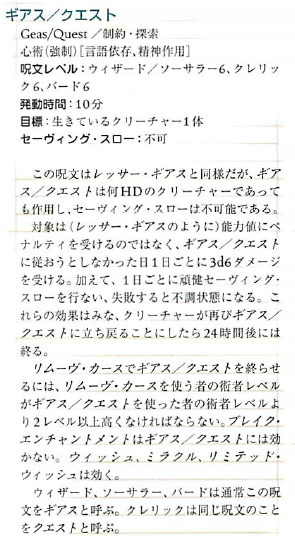 ギアス／クエスト
Geas/Quest ／制約・探索
心術(強制)［言語依存、精神作用］
呪文レベル：ウィザード／ソーサラー6、クレリッ
ク6、バード6
発動時間：10分
目標：生きているクリーチャー1体
セーヴィング・スロー：不可
この呪文はレッサー・ギアスと同様だが、ギア
ス／クエストは何HDのクリーチャーであって
も作用し、セーヴィング・スローは不可能である。
対象は(レッサー・ギアスのように)能力値にペ
ナルティを受けるのではなく、ギアス／クエスト
に従おうとしなかった日1日ごとに3d6ダメージ
を受ける。加えて、1日ごとに頑健セーヴィング・
スローを行ない、失敗すると不調状態になる。こ
れらの効果はみな、クリーチャーが再びギアス／
クエストに立ち戻ることにしたら24時間後には
終る。
リムーヴ・カースでギアス／クエストを終らせ
るには、リムーヴ・カースを使う者の術者レベル
がギアス／クエストを使った者の術者レベルよ
り2レベル以上高くなければならない。ブレイク・
エンチャントメントはギアス／クエストには効
かない。ウィッシュ、ミラクル、リミテッド・
ウィッシュは効く。
ウィザード、ソーサラー、バードは通常この呪
文をギアスと呼ぶ。クレリックは同じ呪文のこと
をクエストと呼ぶ。